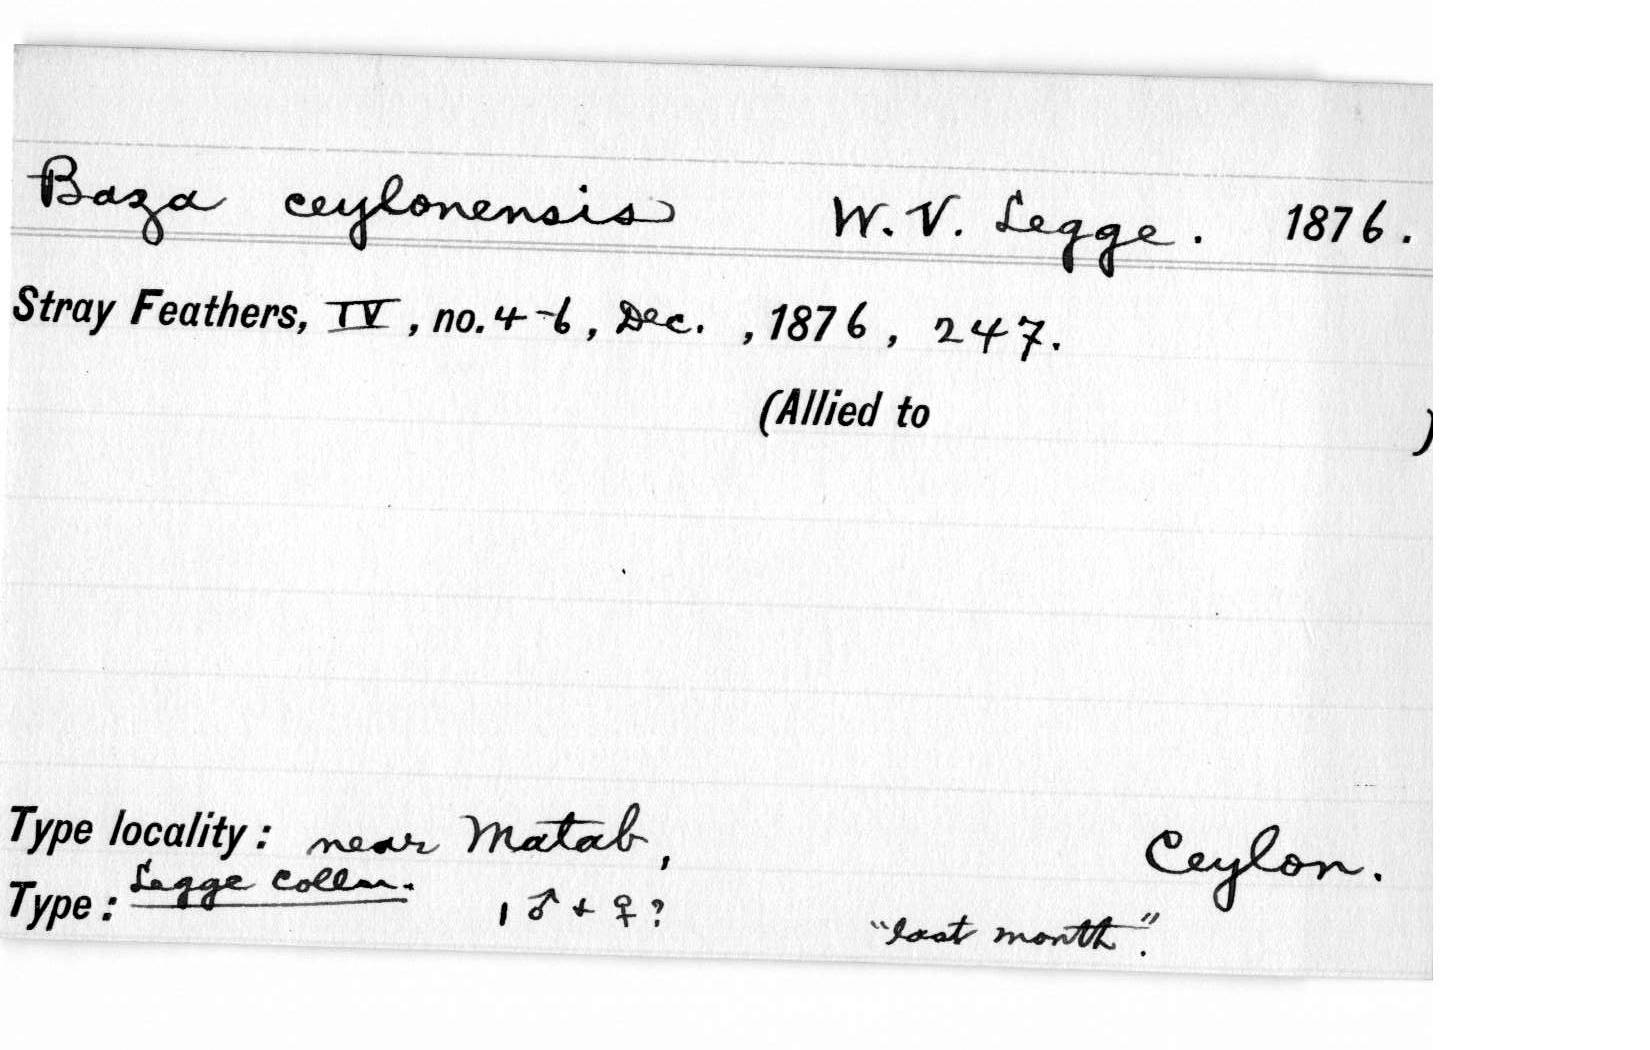 Baza ceylonensis W. V. Legge. 1876.
Stray Feathers, IV, no. 4-6, Dec. , 1876, 247.
(Allied to )
Type locality: near Matab, Ceylon.
Type: Legge Colln. , ♂ + ♀ ? "last month".